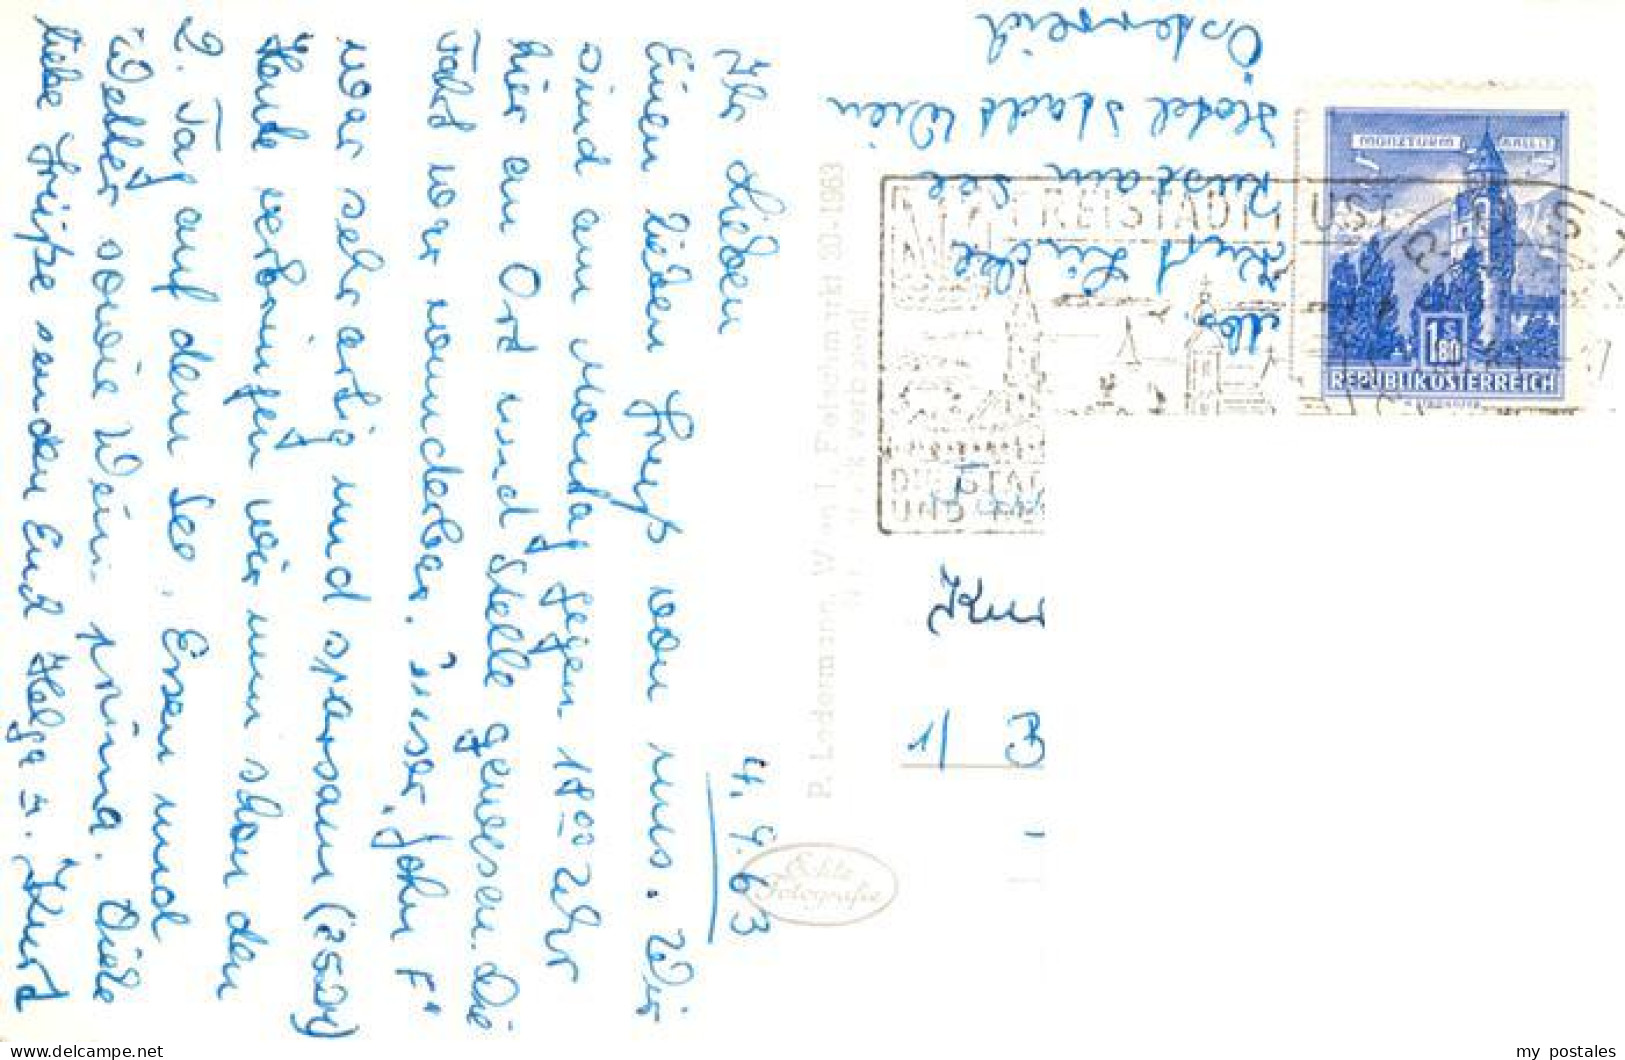 4. 9. 63
Ihr Lieben
Einen lieben Gruß von uns. Wir
sind am Montag gegen 18 00 Uhr
hier am Ort und Stelle gewesen. Die
Fahrt war wunderbar. Unser "John F"
war sehr artig und sparsam
Heute verbringen wir nun schon den
2. Tag auf dem See. Essen und
Wetter sowie Wein prima. Viele
liebe Grüße senden Euch Helga u. Kurt
Abs.
Kurt
Rust am See
Hotel Stadt Wien
Österreich
P. Ledermann, Wien I, Fleischmarkt 20 - 1963
verboten!
Echte
Fotografie
FREISTADT RUST
DIE STA
UND
RUST
MÜNZTURM HALL I. T.
1 S 80
REPUBLIK ÖSTERREICH
Kur
1/ B
my postales